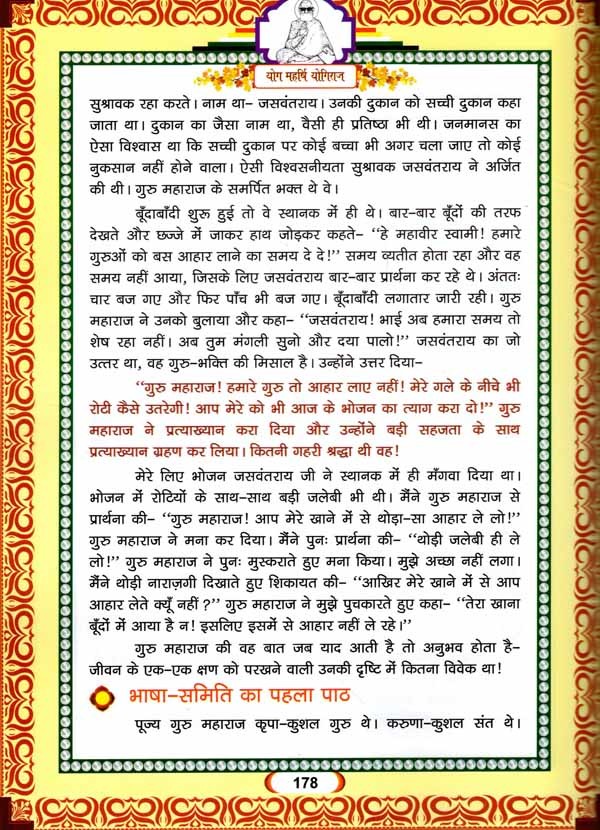 योग महर्षि योगिराज
सुश्रावक रहा करते। नाम था– जसवंतराय। उनकी दुकान को सच्ची दुकान कहा
जाता था। दुकान का जैसा नाम था, वैसी ही प्रतिष्ठा भी थी। जनमानस का
ऐसा विश्वास था कि सच्ची दुकान पर कोई बच्चा भी अगर चला जाए तो कोई
नुकसान नहीं होने वाला। ऐसी विश्वसनीयता सुश्रावक जसवंतराय ने अर्जित
की थी। गुरु महाराज के समर्पित भक्त थे वे।
बूँदाबाँदी शुरू हुई तो वे स्थानक में ही थे। बार–बार बूँदों की तरफ
देखते और छज्जे में जाकर हाथ जोड़कर कहते– “हे महावीर स्वामी! हमारे
गुरुओं को बस आहार लाने का समय दे दे!” समय व्यतीत होता रहा और वह
समय नहीं आया, जिसके लिए जसवंतराय बार–बार प्रार्थना कर रहे थे। अंततः
चार बज गए और फिर पाँच भी बज गए। बूँदाबाँदी लगातार जारी रही। गुरु
महाराज ने उनको बुलाया और कहा– “जसवंतराय! भाई अब हमारा समय तो
शेष रहा नहीं। अब तुम मंगली सुनो और दया पालो!” जसवंतराय का जो
उत्तर था, वह गुरु–भक्ति की मिसाल है। उन्होंने उत्तर दिया–
“गुरु महाराज! हमारे गुरु तो आहार लाए नहीं! मेरे गले के नीचे भी
रोटी कैसे उतरेगी! आप मेरे को भी आज के भोजन का त्याग करा दो!” गुरु
महाराज ने प्रत्याख्यान करा दिया और उन्होंने बड़ी सहजता के साथ
प्रत्याख्यान ग्रहण कर लिया। कितनी गहरी श्रद्धा थी वह!
मेरे लिए भोजन जसवंतराय जी ने स्थानक में ही मँगवा दिया था।
भोजन में रोटियों के साथ–साथ बड़ी जलेबी भी थी। मैंने गुरु महाराज से
प्रार्थना की– “गुरु महाराज! आप मेरे खाने में से थोड़ा–सा आहार ले लो!”
गुरु महाराज ने मना कर दिया। मैंने पुनः प्रार्थना की– “थोड़ी जलेबी ही ले
लो!” गुरु महाराज ने पुनः मुस्कराते हुए मना किया। मुझे अच्छा नहीं लगा।
मैंने थोड़ी नाराज़गी दिखाते हुए शिकायत की– “आखिर मेरे खाने में से आप
आहार लेते क्यूँ नहीं?” गुरु महाराज ने मुझे पुचकारते हुए कहा– “तेरा खाना
बूँदों में आया है न! इसलिए इसमें से आहार नहीं ले रहे।”
गुरु महाराज की वह बात जब याद आती है तो अनुभव होता है–
जीवन के एक–एक क्षण को परखने वाली उनकी दृष्टि में कितना विवेक था!
भाषा–समिति का पहला पाठ
पूज्य गुरु महाराज कृपा–कुशल गुरु थे। करुणा–कुशल संत थे।
178